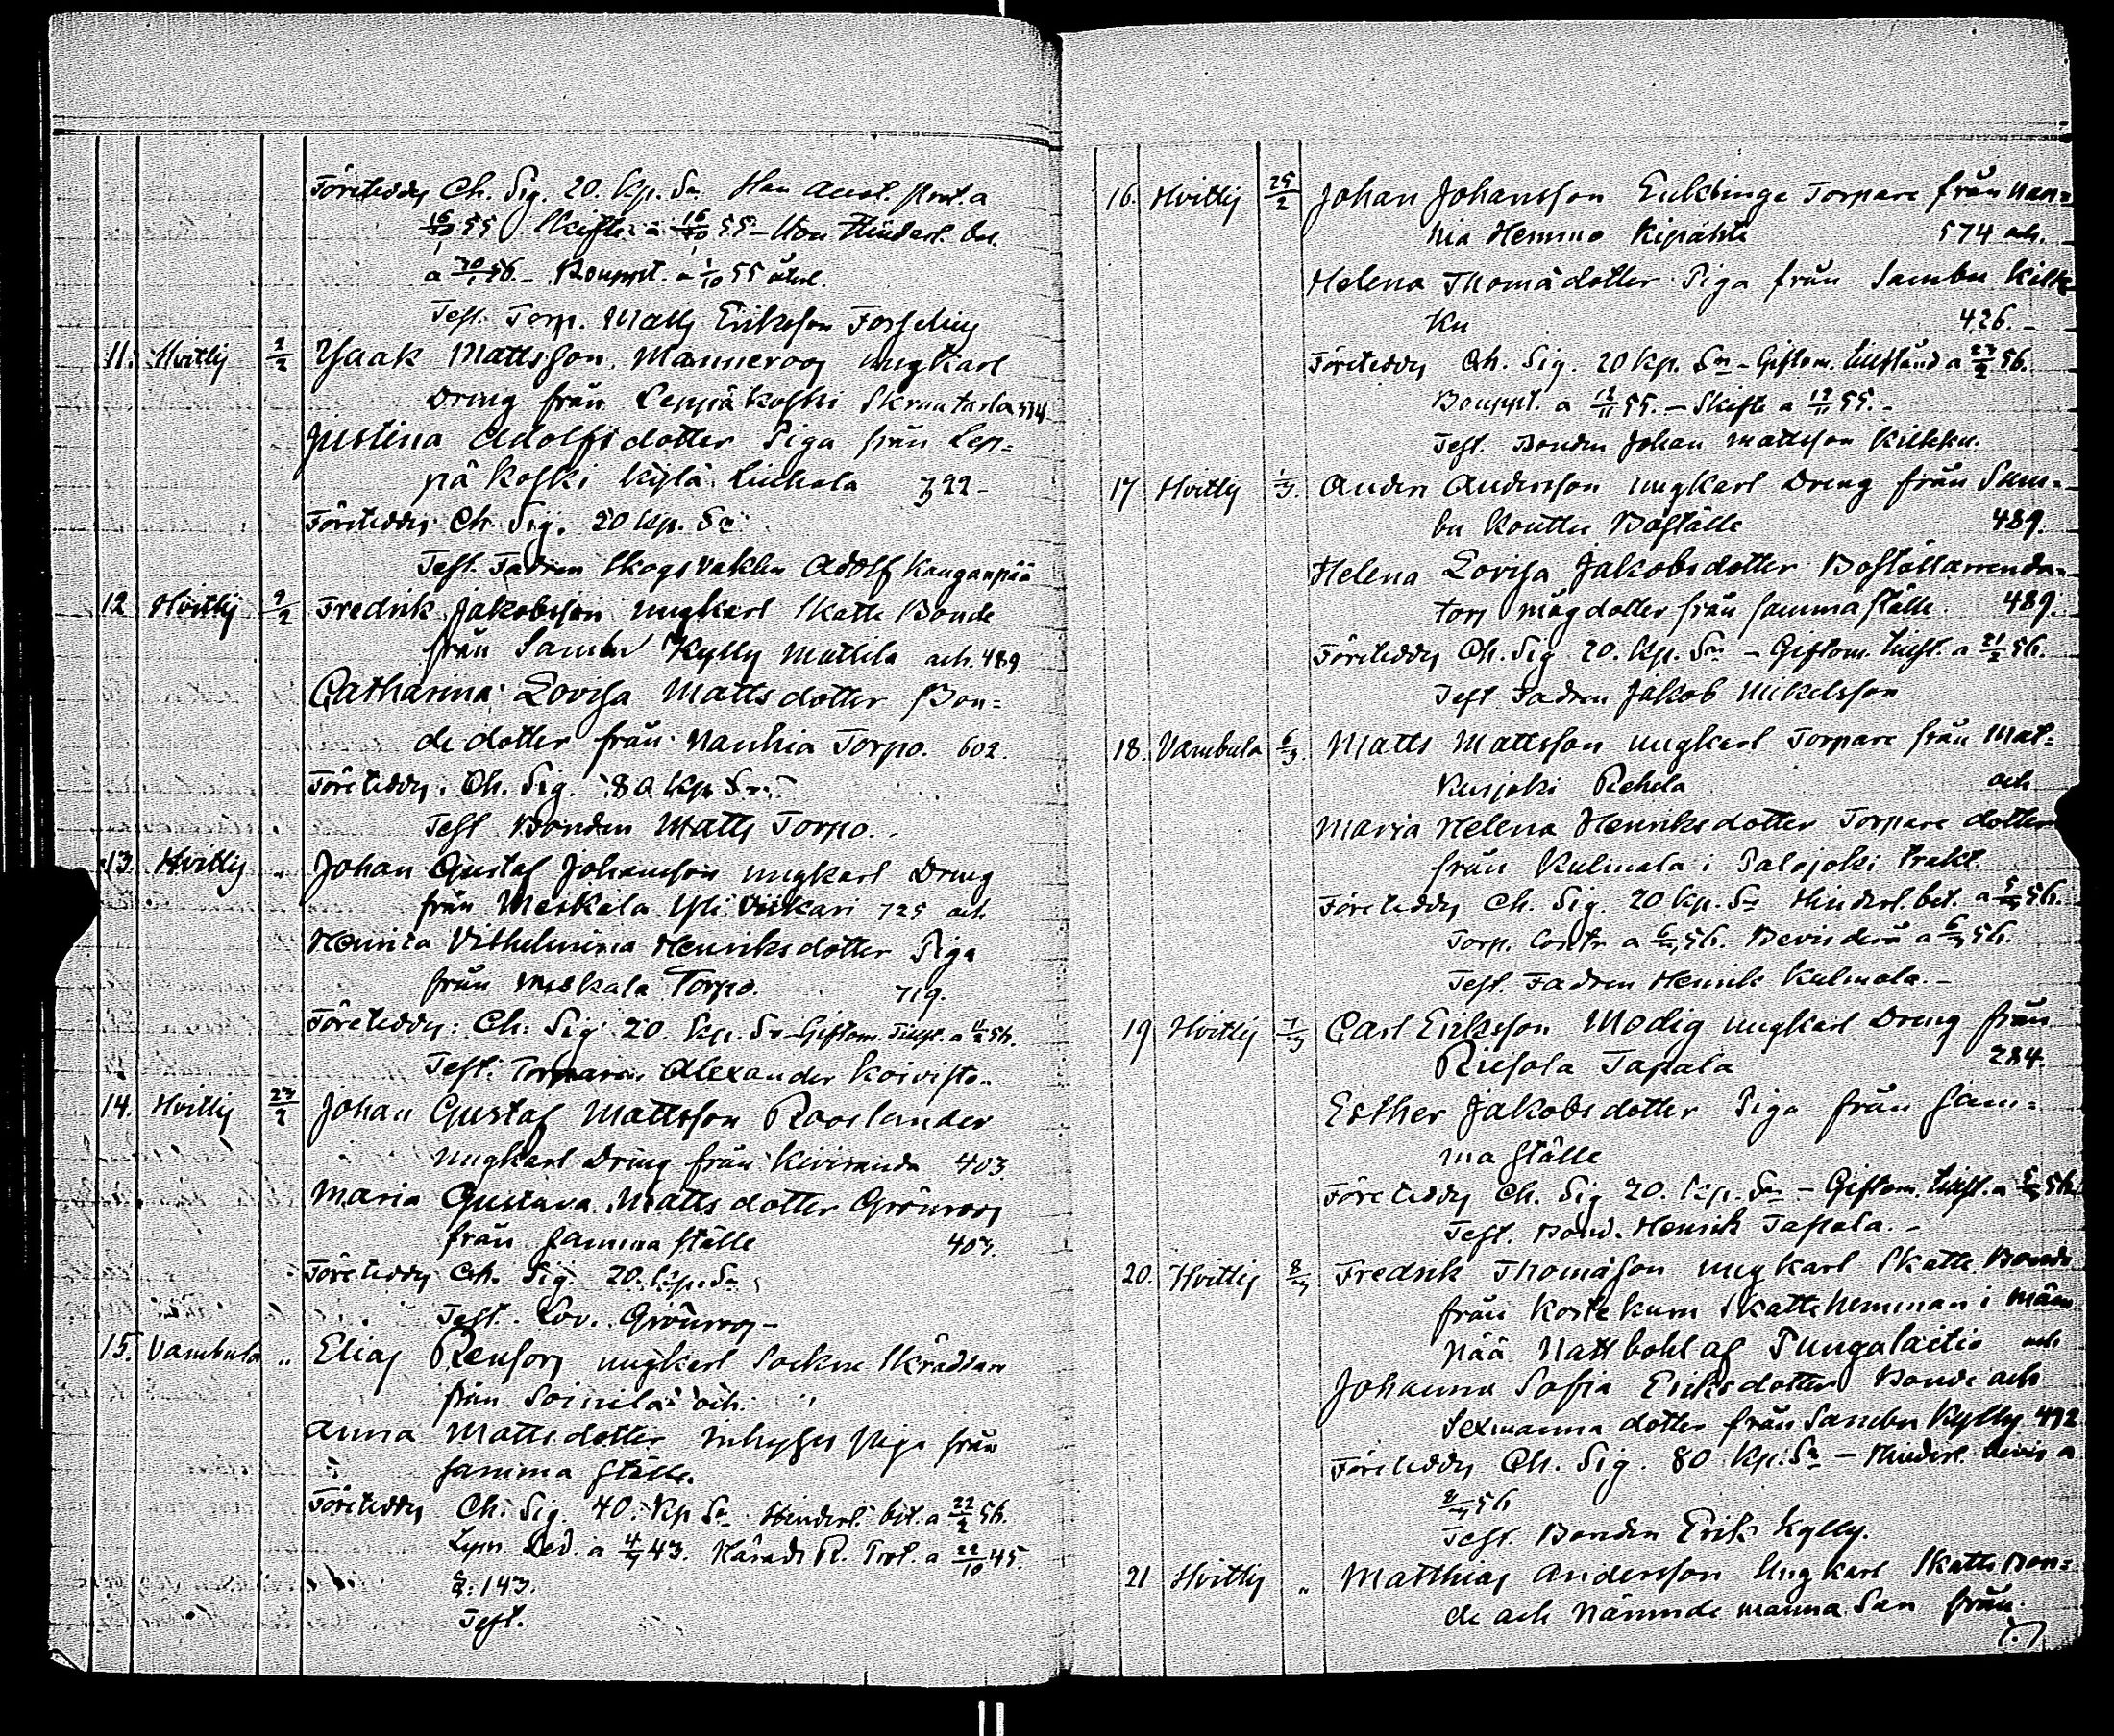 Företeddes Ch. Sig. 20. kp. Sr. Han
16/10 55 Skifte a 16/10 55 - Hon Hinderl. bet.
a 30/1 56. - Bouppt. a 1/10 55 åtul.
Test. Torp. Matts Eriksson Forsselius
11. Hvittis 2/2 Ysaak Mattsson Manneroos ungkarl
Dreng från Leppäkoski Skruutarla 334
Justina Adolfsdotter Piga från Lep=
pä koski Kylä Liuhala 322 -
Företeddes Ch. Sig. 20 kp. Sr
Test. Fadren Skogsvakten Adolf Kanganpää
12 Hvittis 9/2 Fredrik Jakobsson ungkarl Skatte Bonde
från Sambu Kylly Mattila och. 489
Catharina Lovisa Mattsdotter Bon=
de dotter från Nanhia Torpo. 602.
Företeddes. Ch. Sig. 80. kp Sr.
Test Bonden Matts Torpo.
13. Hvittis " Johan Gustaf Johansson ungkarl Dreng
från Meskala Yli Viikari 725 och
Henrica Vilhelmina Henriksdotter Piga
från Meskala Torpo. 719.
Företeddes: Ch: Sig 20 kp. Sr - Giftom. Tillst. a 11/2 56.
Test: Torparen Alexander Koivisto.
14. Hvittis 23/2 Johan Gustaf Mattsson Rooslander
ungkarl Dreng från Kiviranda 403.
Maria Gustava Mattsdotter Grönroos
från samma ställe 403.
Företeddes Ch. Sig. 20. kp. Sr
Test. Lov. Grönroos -
15. Vambula " Elias Renfors ungkarl Sockne Skräddare
från Soinila och.
Anna Mattsdotter Inhyses piga från
samma ställe.
Företeddes Ch. Sig. 40. Kp Sr Hinderl. bet. a 22/2 56.
Sed. a 4/3 43. Härads R. Prot. a 22/10 45.
§: 143.
Test.
16. Hvittis 25/2 Johan Johansson Torpare från Nan=
hia Hemmo Kipähte 574 och.
Helena Thomädotter Piga från Sambu Kilk
ku 426. -
Företeddes Ch. Sig. 20 kp. Sr - Giftom. tillstånd a 23/2 56.
Bouppt. a 12/11 55. - Skifte a 12/11 55. -
Test. Bonden Johan Mattsson Kilkku.
17 Hvittis 1/3. Anders Andersson ungkarl Dreng från Sam=
bu Kouttu Boställe 489.
Helena Lovisa Jakobsdotter Boställarrenda=
tors mågdotter från samma ställe. 489.
Företeddes Ch. Sig 20. kp. Sr - Giftom. tillst. a 21/2 56.
Test Fadren Jakob Mikelsson
18. Vambula 6/3. Matts Mattsson ungkarl Torpare från Mat=
kusjoki Rehela och
Maria Helena Henriksdotter Torpare dotter
från Kulmala i Palojoki trakt.
Företeddes Ch. Sig. 20 kp. Sr Hinderl. bet. a 5/3 56.
Torp. Contr a 6/3 56. Bevis derå a 6/3 56.
Test. Fadren Henrik Kulmala. -
19 Hvittis 7/3 Carl Eriksson Modig ungkarl Dreng från
Riesola Tapala 284.
Esther Jakobsdotter Piga från sam=
ma ställe
Företeddes Ch. Sig 20. kp. Sr - Giftom. tillst. a 5/3 56.
Test. Bond. Henrik Tapala. -
20. Hvittis 8/3 Fredrik Thomäson ungkarl Skatte Bonde
från Kostekum Skattehemman i Män
nää Nattbohl af Pungalaitio och
Johanna Sofia Eriksdotter Bonde och
Sexmanna dotter från Sambu Kylly 492
Företeddes Ch. Sig. 80 kp. Sr - Hinderl. bevis a
8/3 56
Test. Bonden Erik Kylly.
21 Hvittis " Matthias Andersson Ungkarl Skatte Bon=
de och Nämndemanna Son från